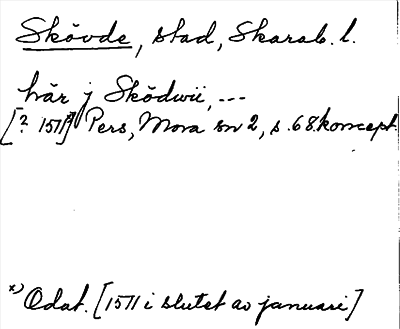 Skövde, stad, Skarab. l.
här j Sködwii, ---
[? 1511]x) Pers, Mora sn 2, s. 68. koncept.
x) Odat. [1511 i slutet av januari]